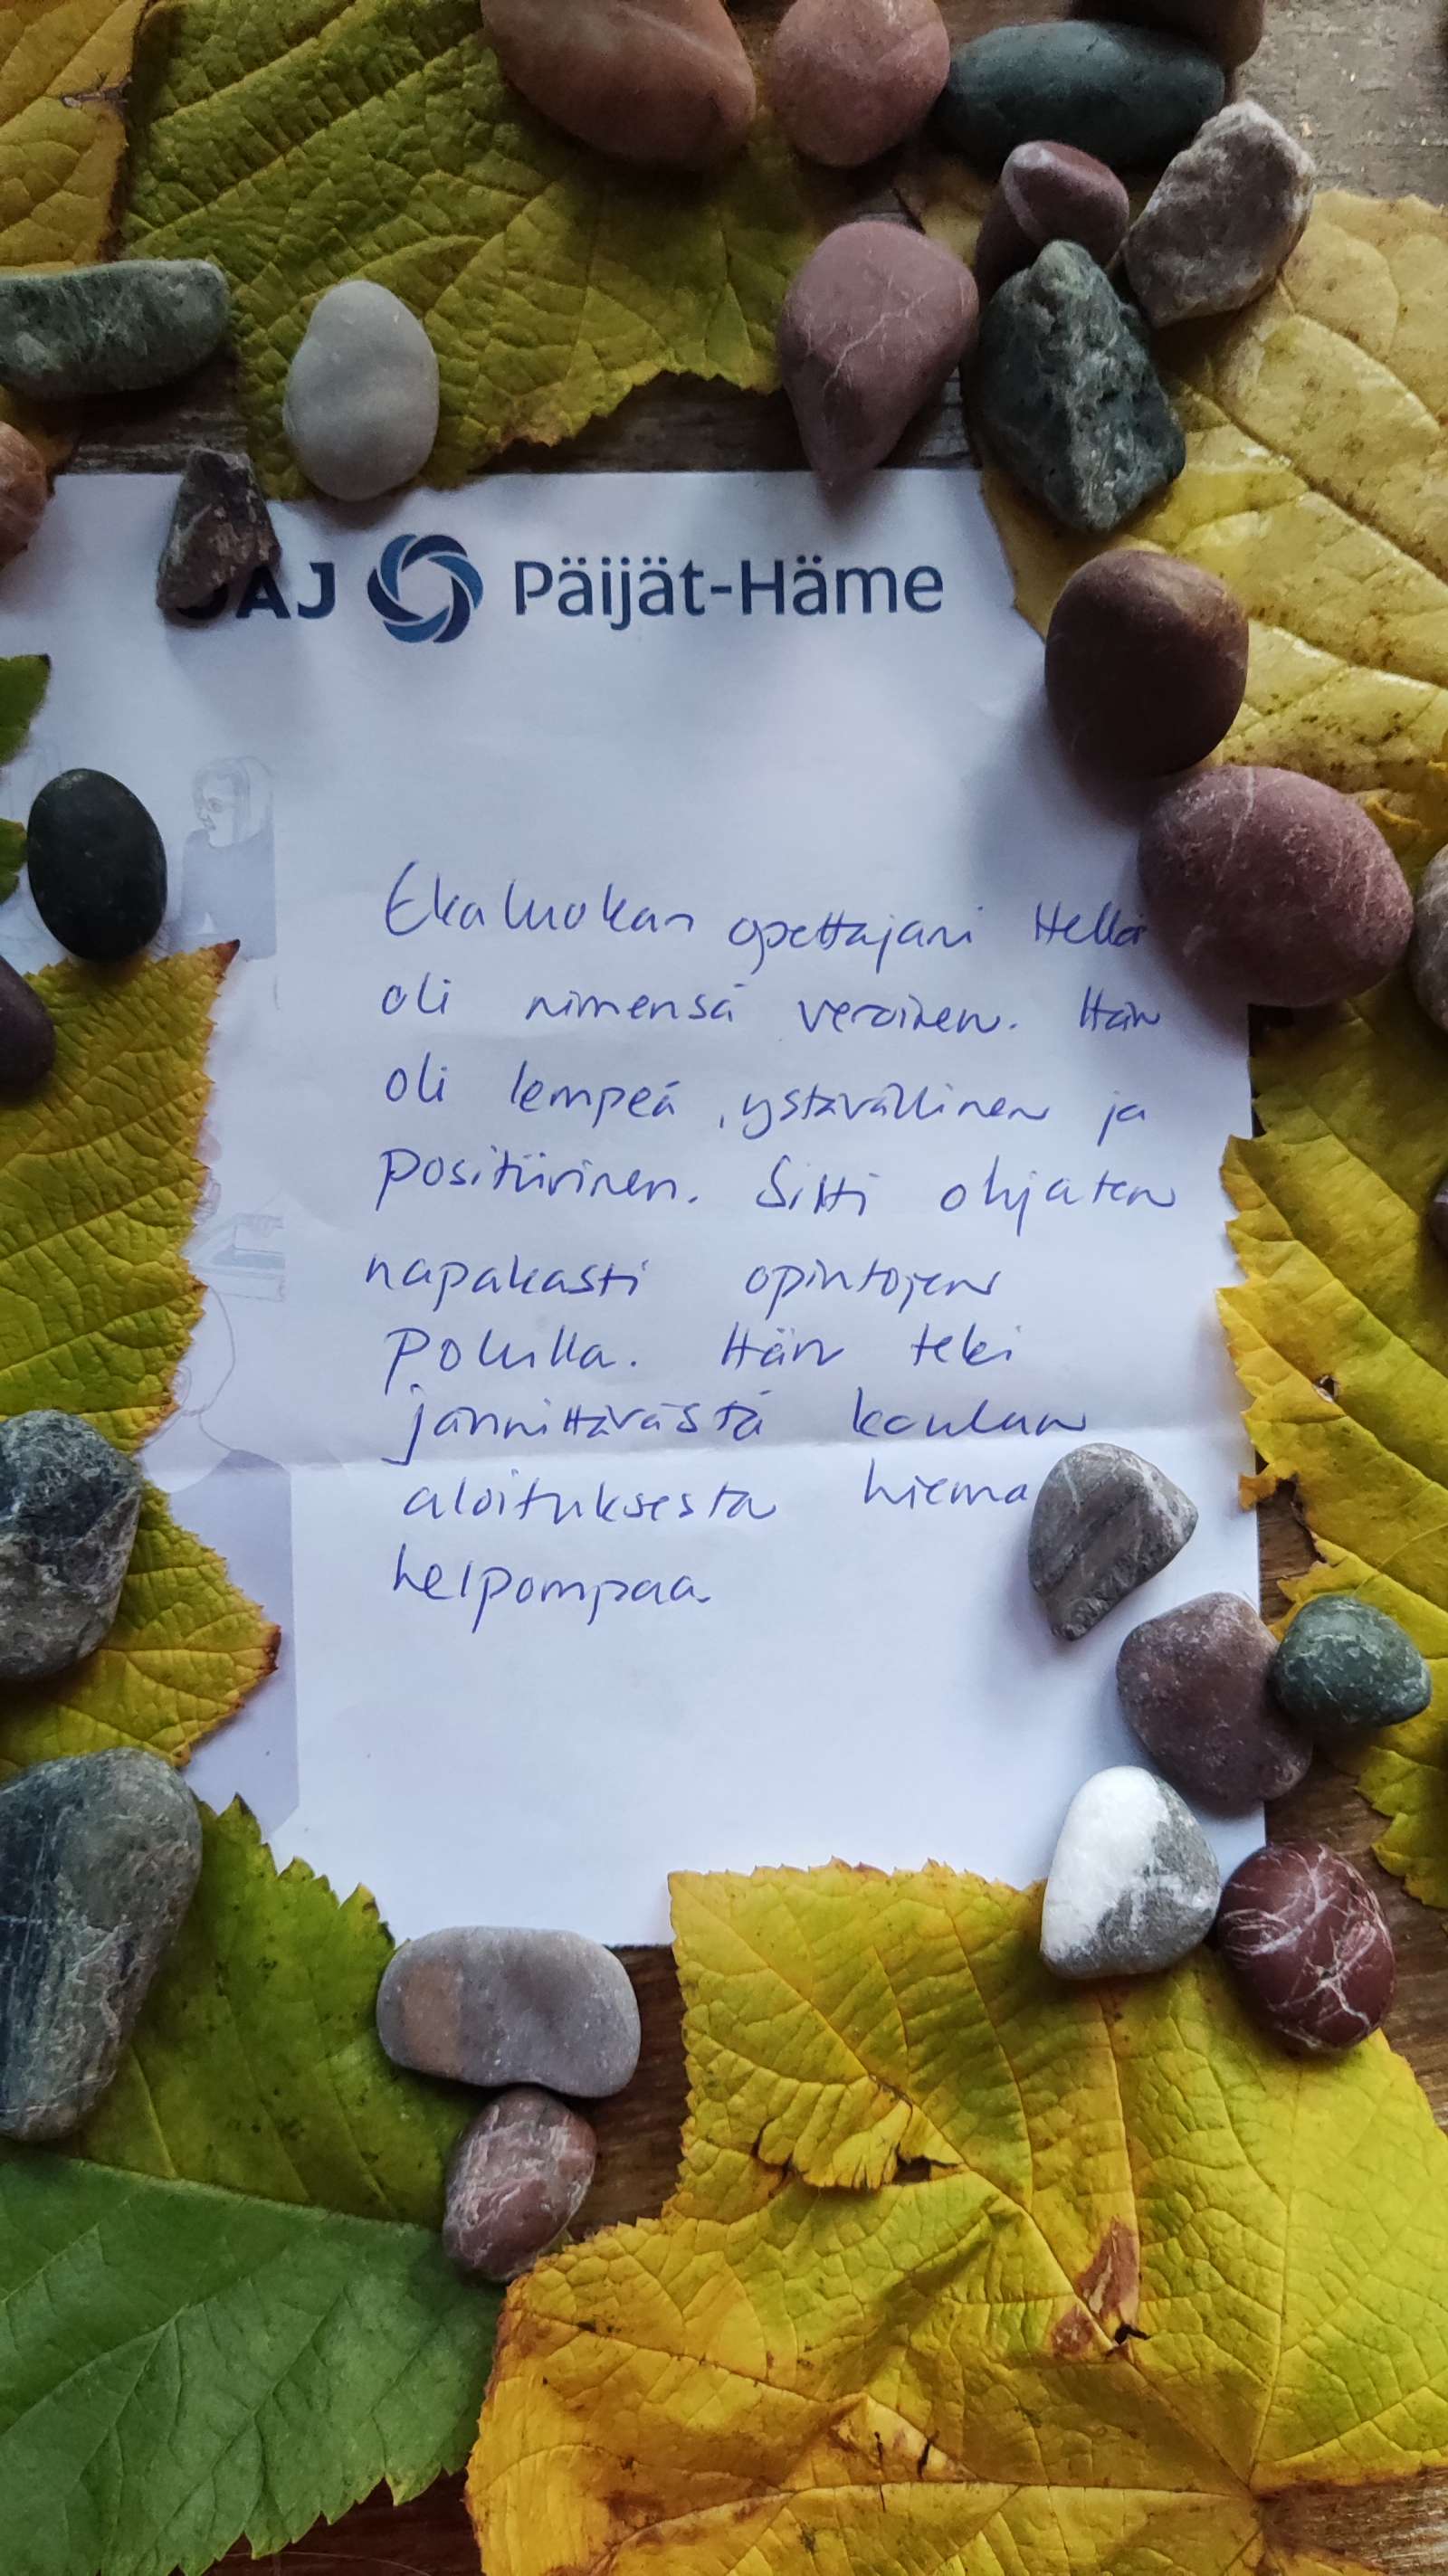 OAJ Päijät-Häme
Ekaluokan opettajani Hellä
oli nimensä veroinen. Hän
oli lempeä, ystävällinen ja
positiivinen. Silti ohjaten
napakasti opintojen
polulla. Hän teki
jännittävästä koulun
aloituksesta hieman
helpompaa.